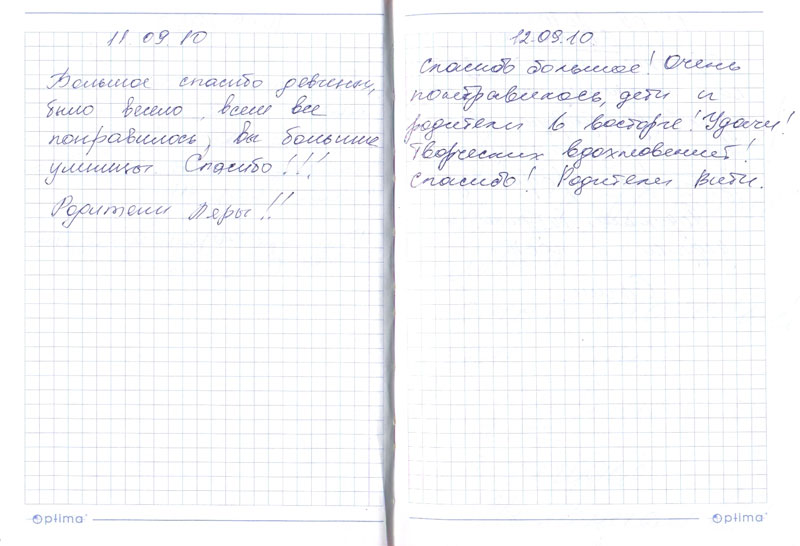 11 09 10
Большое спасибо девчёнки,
было весело, всем все
понравилось, вы большие
умницы Спасибо!!!
Родители Леры!!
12.09.10.
Спасибо большое! Очень
понравилось, дети и
родители в восторге! Удачи!
Творческих вдохновений!
Спасибо! Родители Вити.
Optima
Optima